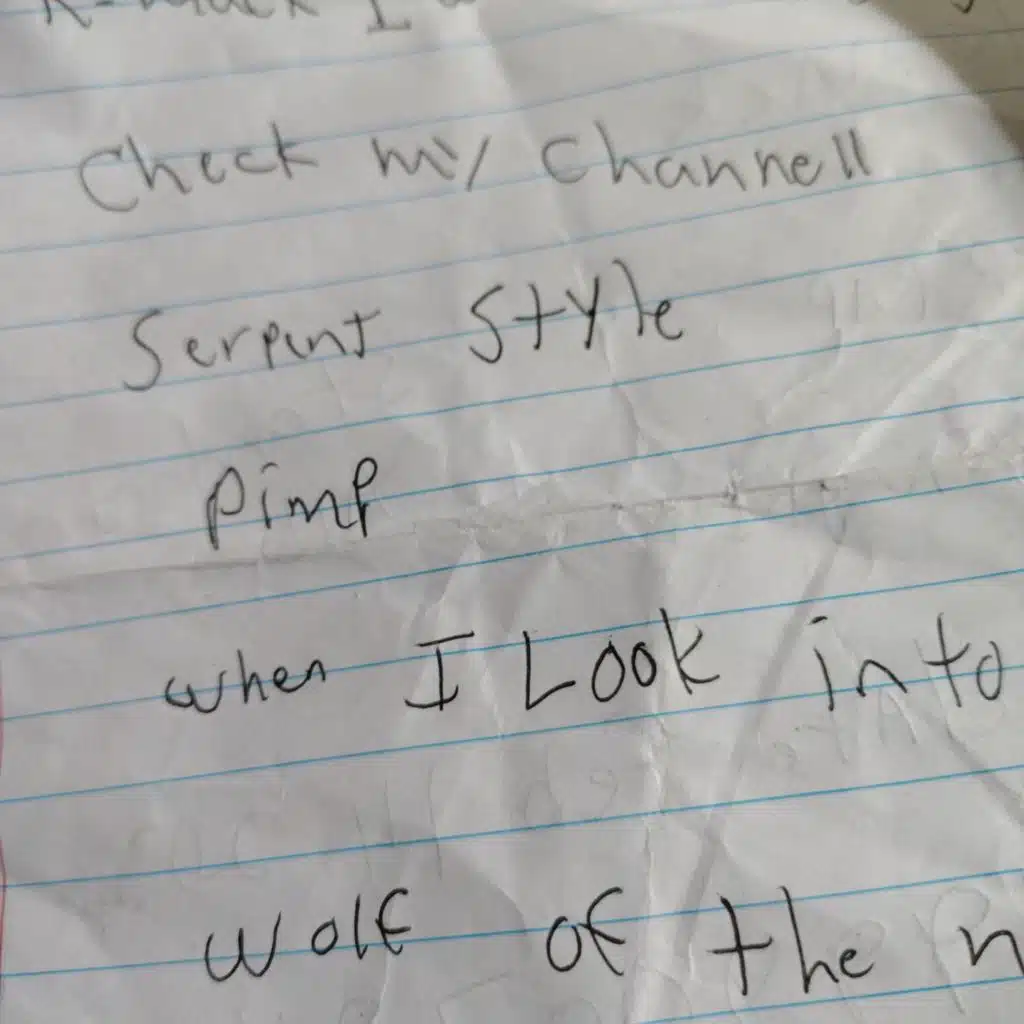 Check my Channell
Serpent Style
Pimp
when I Look into
wolf of the